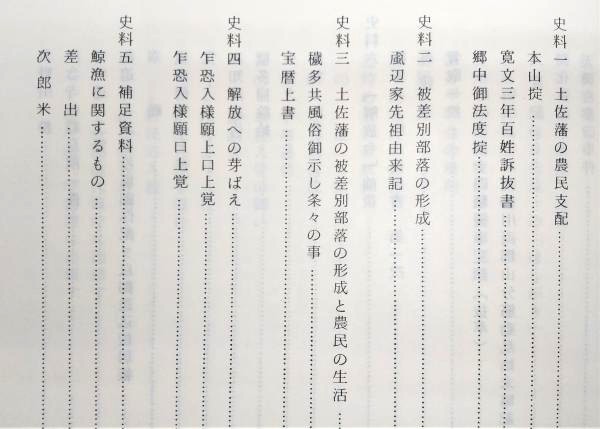 史料一 土佐藩の農民支配
本山掟
寛文三年百姓訴抜書
郷中御法度掟
史料二 被差別部落の形成
𢈘辺家先祖由来記
史料三 土佐藩の被差別部落の形成と農民の生活
穢多共風俗御示し条々の事
宝暦上書
史料四 解放への芽ばえ
乍恐入様願上口上覚
乍恐入様願口上覚
史料五 補足資料
鯨漁に関するもの
差出
次郎米